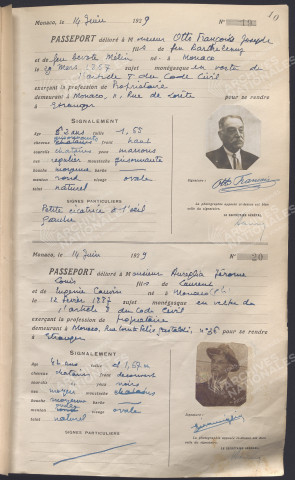 Monaco, le 14 Juin 1929 N° 19
PASSEPORT délivré à Monsieur Otto François Joseph
fils de feu Barthélemy
et feu Dévote Médin né à Monaco
le 29 Mars 1867 sujet monégasque en vertu de
l'Article 8 du Code Civil
exerçant la profession de Propriétaire
demeurant à Monaco, Rue de Lorète pour se rendre
à Etranger
SIGNALEMENT
âge 62 ans taille 1,65
cheveux grisonnants front haut
sourcils châtains yeux marrons
nez régulier moustache grisonnante
bouche moyenne barbe
menton rond visage ovale
teint naturel
SIGNES PARTICULIERS
Petite cicatrice à l'œil
gauche
Signature :
Otto François
La photographie apposée ci-dessus est bien
celle du signataire.
LE SECRÉTAIRE GÉNÉRAL,
Monaco, le 14 Juin 1929 N° 20
PASSEPORT délivré à Monsieur Aureglia Jérôme
Louis fils de Laurent
et Eugénie Cauvin né à Monaco
le 12 février 1887 sujet monégasque en vertu de
l'article 8 du code Civil
exerçant la profession de Propriétaire
demeurant à Monaco, Rue Comte Félix Gastaldi, pour se rendre
à Etranger
SIGNALEMENT
âge 42 ans taille 1,67m
cheveux châtains front découvert
sourcils yeux noirs
nez moyen moustache châtains
bouche moyenne barbe
menton visage ovale
teint naturel
SIGNES PARTICULIERS
Signature :
La photographie apposée ci-dessus est bien
celle du signataire.
LE SECRÉTAIRE GÉNÉRAL,